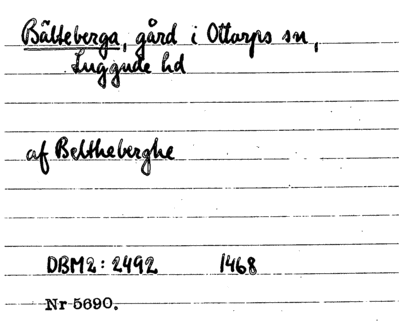 Bälteberga, gård i Ottarps sn,
Luggude hd
af Beltheberghe
DBM2: 2492 1468
Nr 5690.